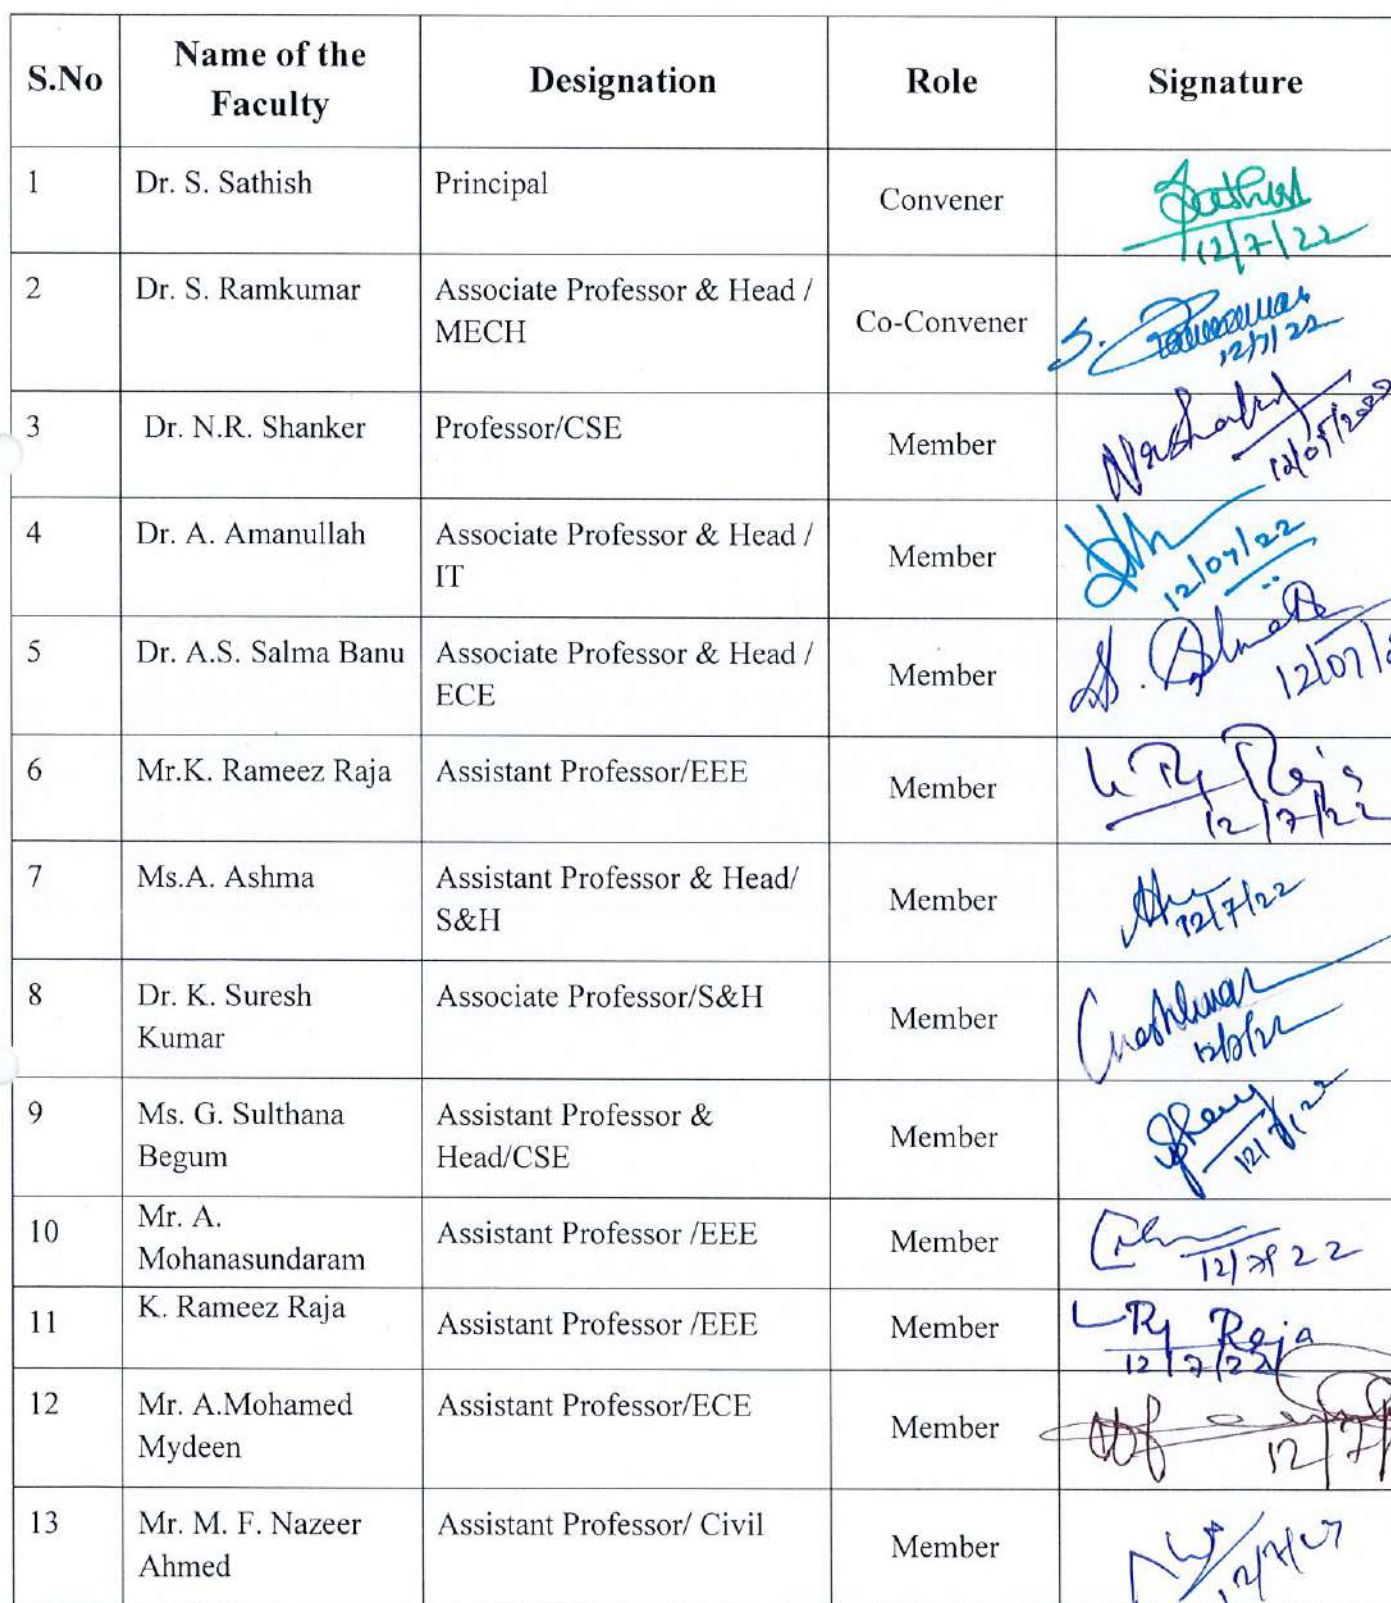 S.No Name of the Faculty Designation Role Signature
1 Dr. S. Sathish Principal Convener
12/7/22
2 Dr. S. Ramkumar Associate Professor & Head / Co-Convener
MECH
12/7/22
3 Dr. N.R. Shanker Professor/CSE Member
4 Dr. A. Amanullah Associate Professor & Head / Member
IT
12/07/22
5 Dr. A.S. Salma Banu Associate Professor & Head / Member
ECE
12/07/
6 Mr.K. Rameez Raja Assistant Professor/EEE Member Raja
12/7/22
7 Ms.A. Ashma Assistant Professor & Head/ Member
S&H
12/7/22
8 Dr. K. Suresh Associate Professor/S&H Member
Kumar
9 Ms. G. Sulthana Assistant Professor & Member
Begum Head/CSE
12/7/22
10 Mr. A. Assistant Professor /EEE Member
Mohanasundaram
11 K. Rameez Raja Assistant Professor /EEE Member Raja
12/7/22
12 Mr. A.Mohamed Assistant Professor/ECE Member
Mydeen
12/7/
13 Mr. M. F. Nazeer Assistant Professor/ Civil Member
Ahmed